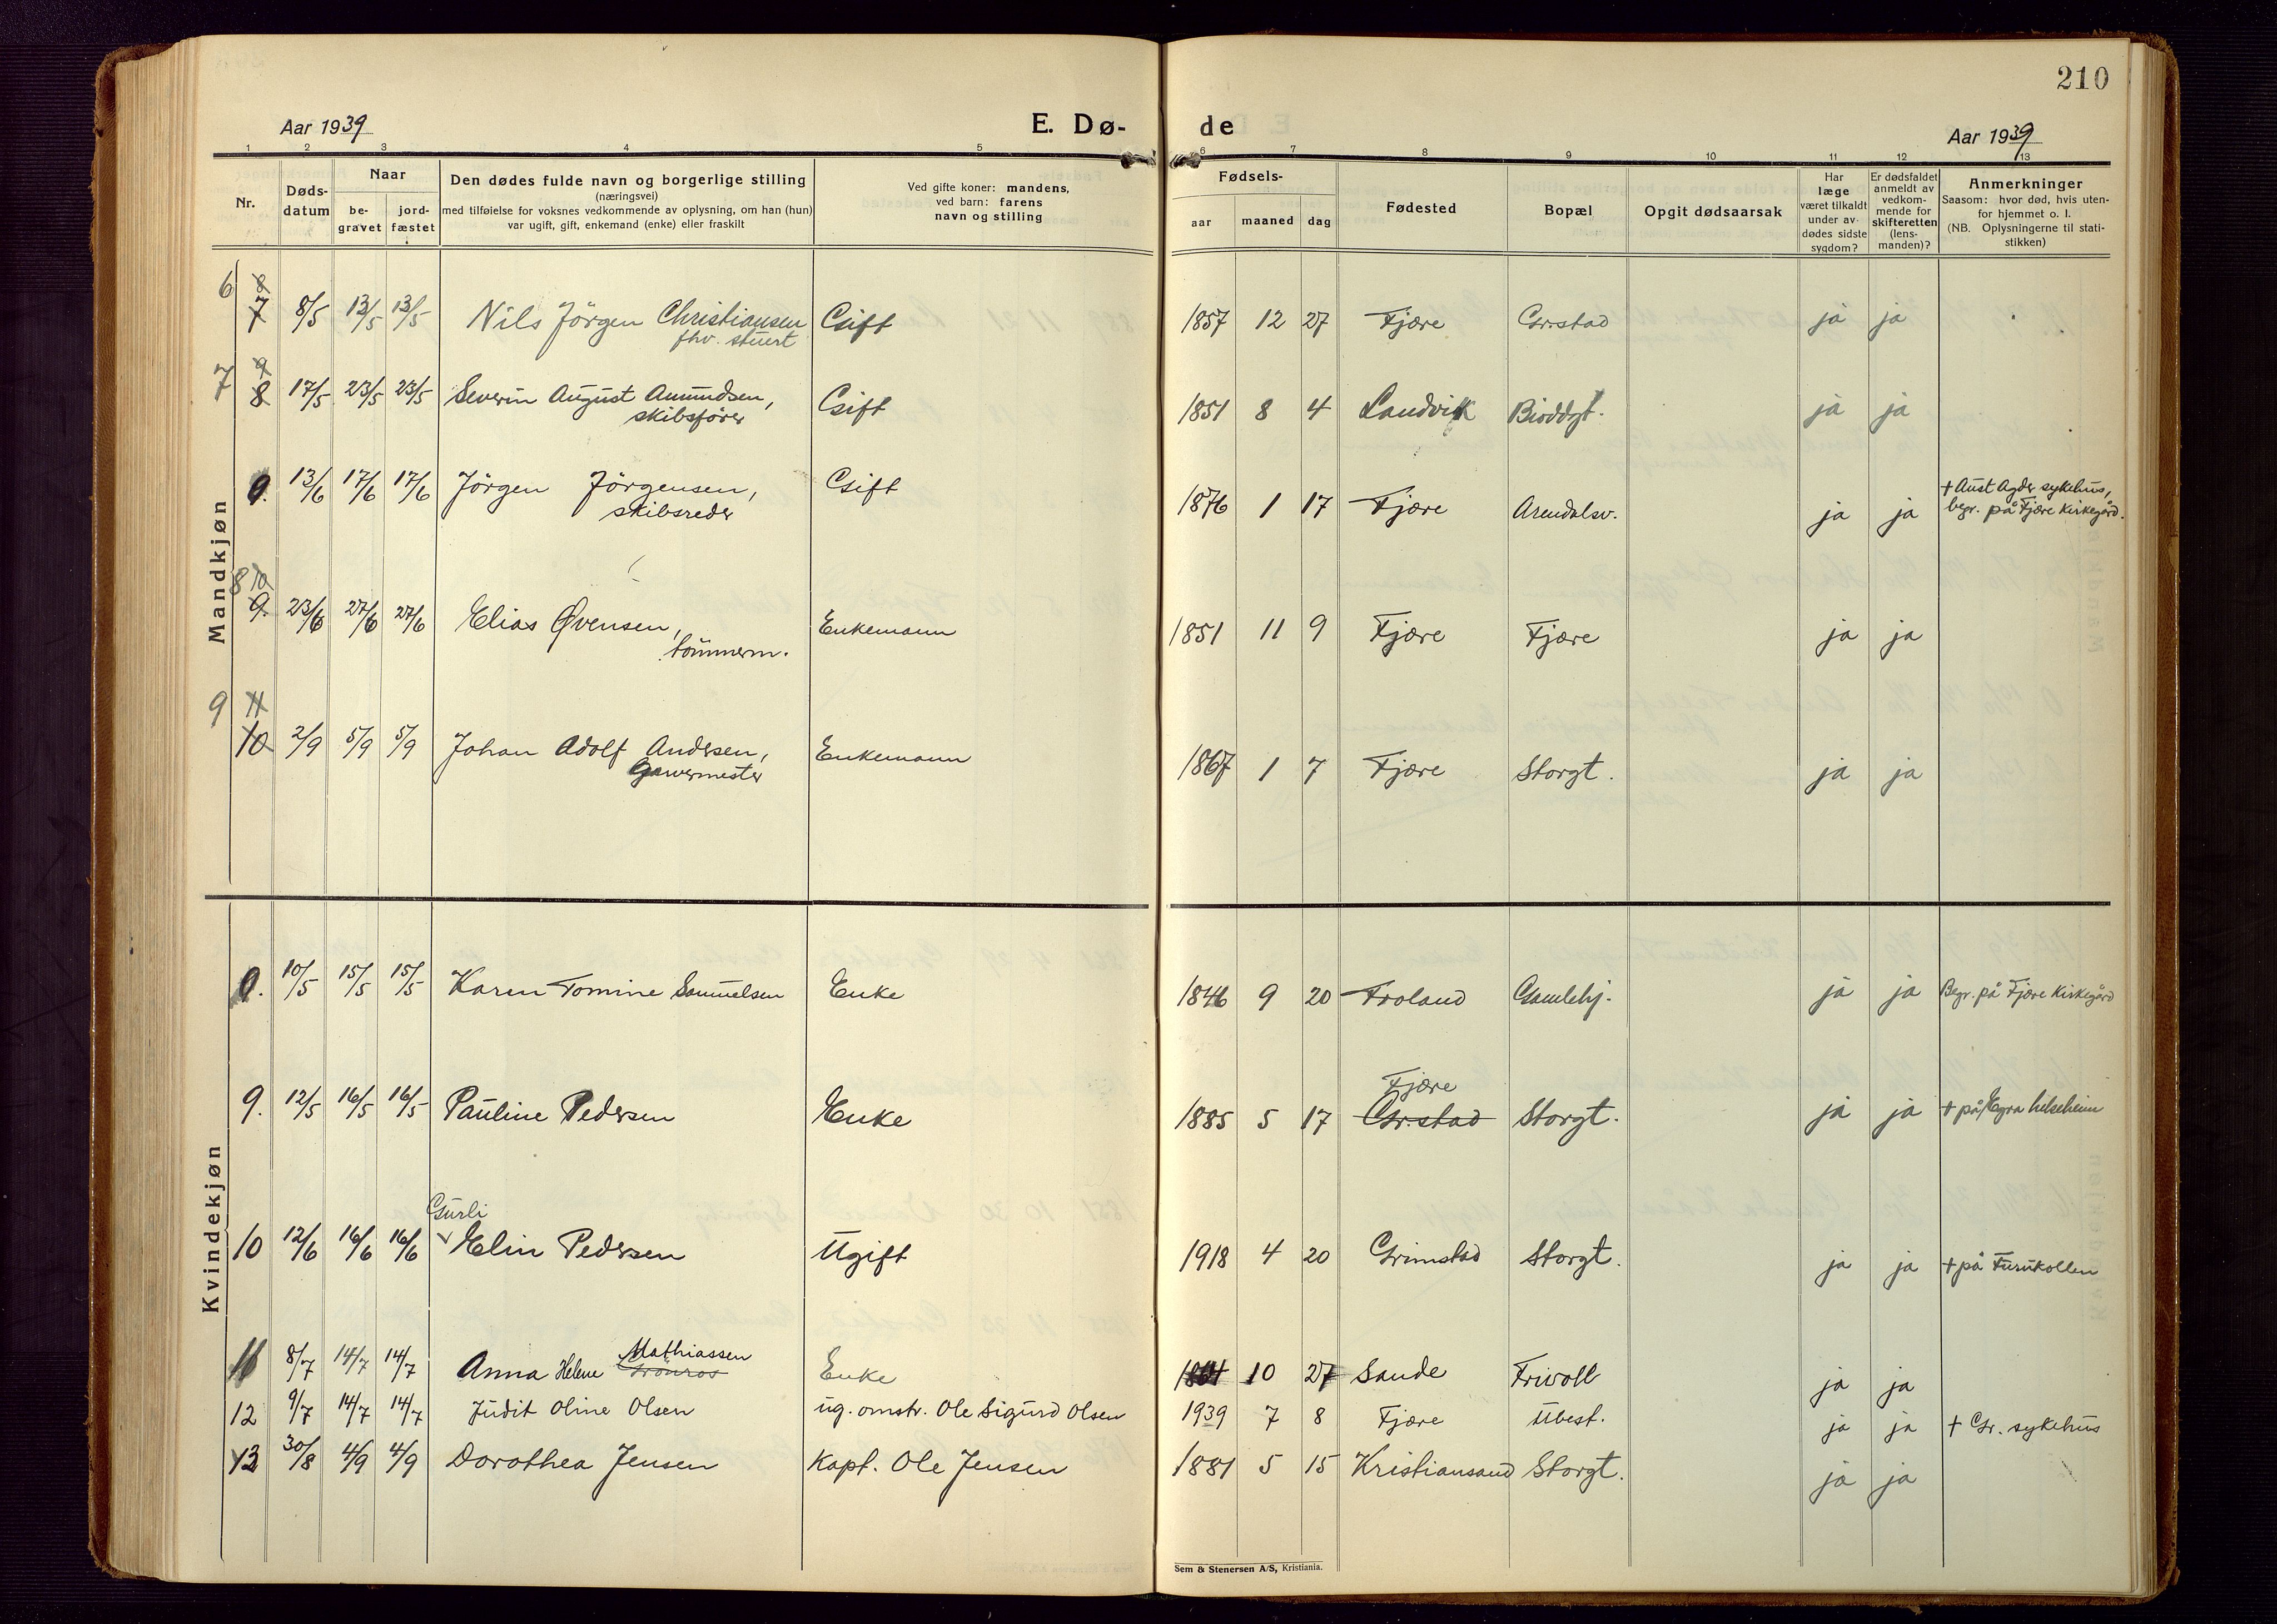 210
Aar 1939
E. Dø-
de
Aar 1939
1 2 3 4 5 6 7 8 9 10 11 12 13
Nr.
Døds-
datum
Naar
be-
gravet
jord-
fæstet
Den dødes fulde navn og borgerlige stilling
(næringsvei)
med tilføielse for voksnes vedkommende av oplysning, om han (hun)
var ugift, gift, enkemand (enke) eller fraskilt
Ved gifte koner: mandens,
ved barn: farens
navn og stilling
Fødsels-
aar maaned dag
Fødested
Bopæl
Opgit dødsaarsak
Har
læge
været tilkaldt
under av-
dødes sidste
sygdom?
Er dødsfaldet
anmeldt av
vedkom-
mende for
skifteretten
(lens-
manden)?
Anmerkninger
Saasom: hvor død, hvis uten-
for hjemmet o. l.
(NB. Oplysningerne til stati-
stikken)
Mandkjøn
6 8
7 8/5 13/5 13/5 Nils Jörgen Christiansen Gift 1857 12 27 Fjære Gr.stad ja ja
fhv. stuert
7 9
8 17/5 23/5 23/5 Severin August Amundsen, Gift 1851 8 4 Landvik Bioddgt. ja ja
skibsförer
13/6 17/6 17/6 Jörgen Jörgensen, Gift 1876 1 17 Fjære Arendalsv. ja ja + Aust Agder sykehus,
skibsreder begr. på Fjære Kirkegård.
8 10
9. 23/6 27/6 27/6 Elias Øvensen, Enkemann 1851 11 9 Fjære Fjære ja ja
tömmerm.
9 11
10 2/9 5/9 5/9 Johan Adolf Andersen, Enkemann 1867 1 7 Fjære Storgt. ja ja
Garvermester
Kvindekjøn
10/5 15/5 15/5 Karen Tomine Samuelsen Enke 1846 9 20 Froland Gamlehj. ja ja Begr. på Fjære Kirkegård
Fjære
9. 12/5 16/5 16/5 Pauline Pedersen Enke 1885 5 17 Gr.stad Storgt. ja ja + på Egra helseheim
Gurli
10 12/6 16/6 16/6 Elin Pedersen Ugift 1918 4 20 Grimstad Storgt. ja ja + på Furukollen
Mathiassen
11 8/7 14/7 14/7 Anna Helene Grönros Enke 1864 10 27 Sande Frivoll ja ja
12 9/7 14/7 14/7 Judit Oline Olsen ug. omstr. Ole Sigurd Olsen 1939 7 8 Fjære Ubest. ja ja + Gr. sykehus
13 30/8 4/9 4/9 Dorothea Jensen Kapt. Ole Jensen 1881 5 15 Kristiansand Storgt. ja ja
Sem & Stenersen A/S, Kristiania.